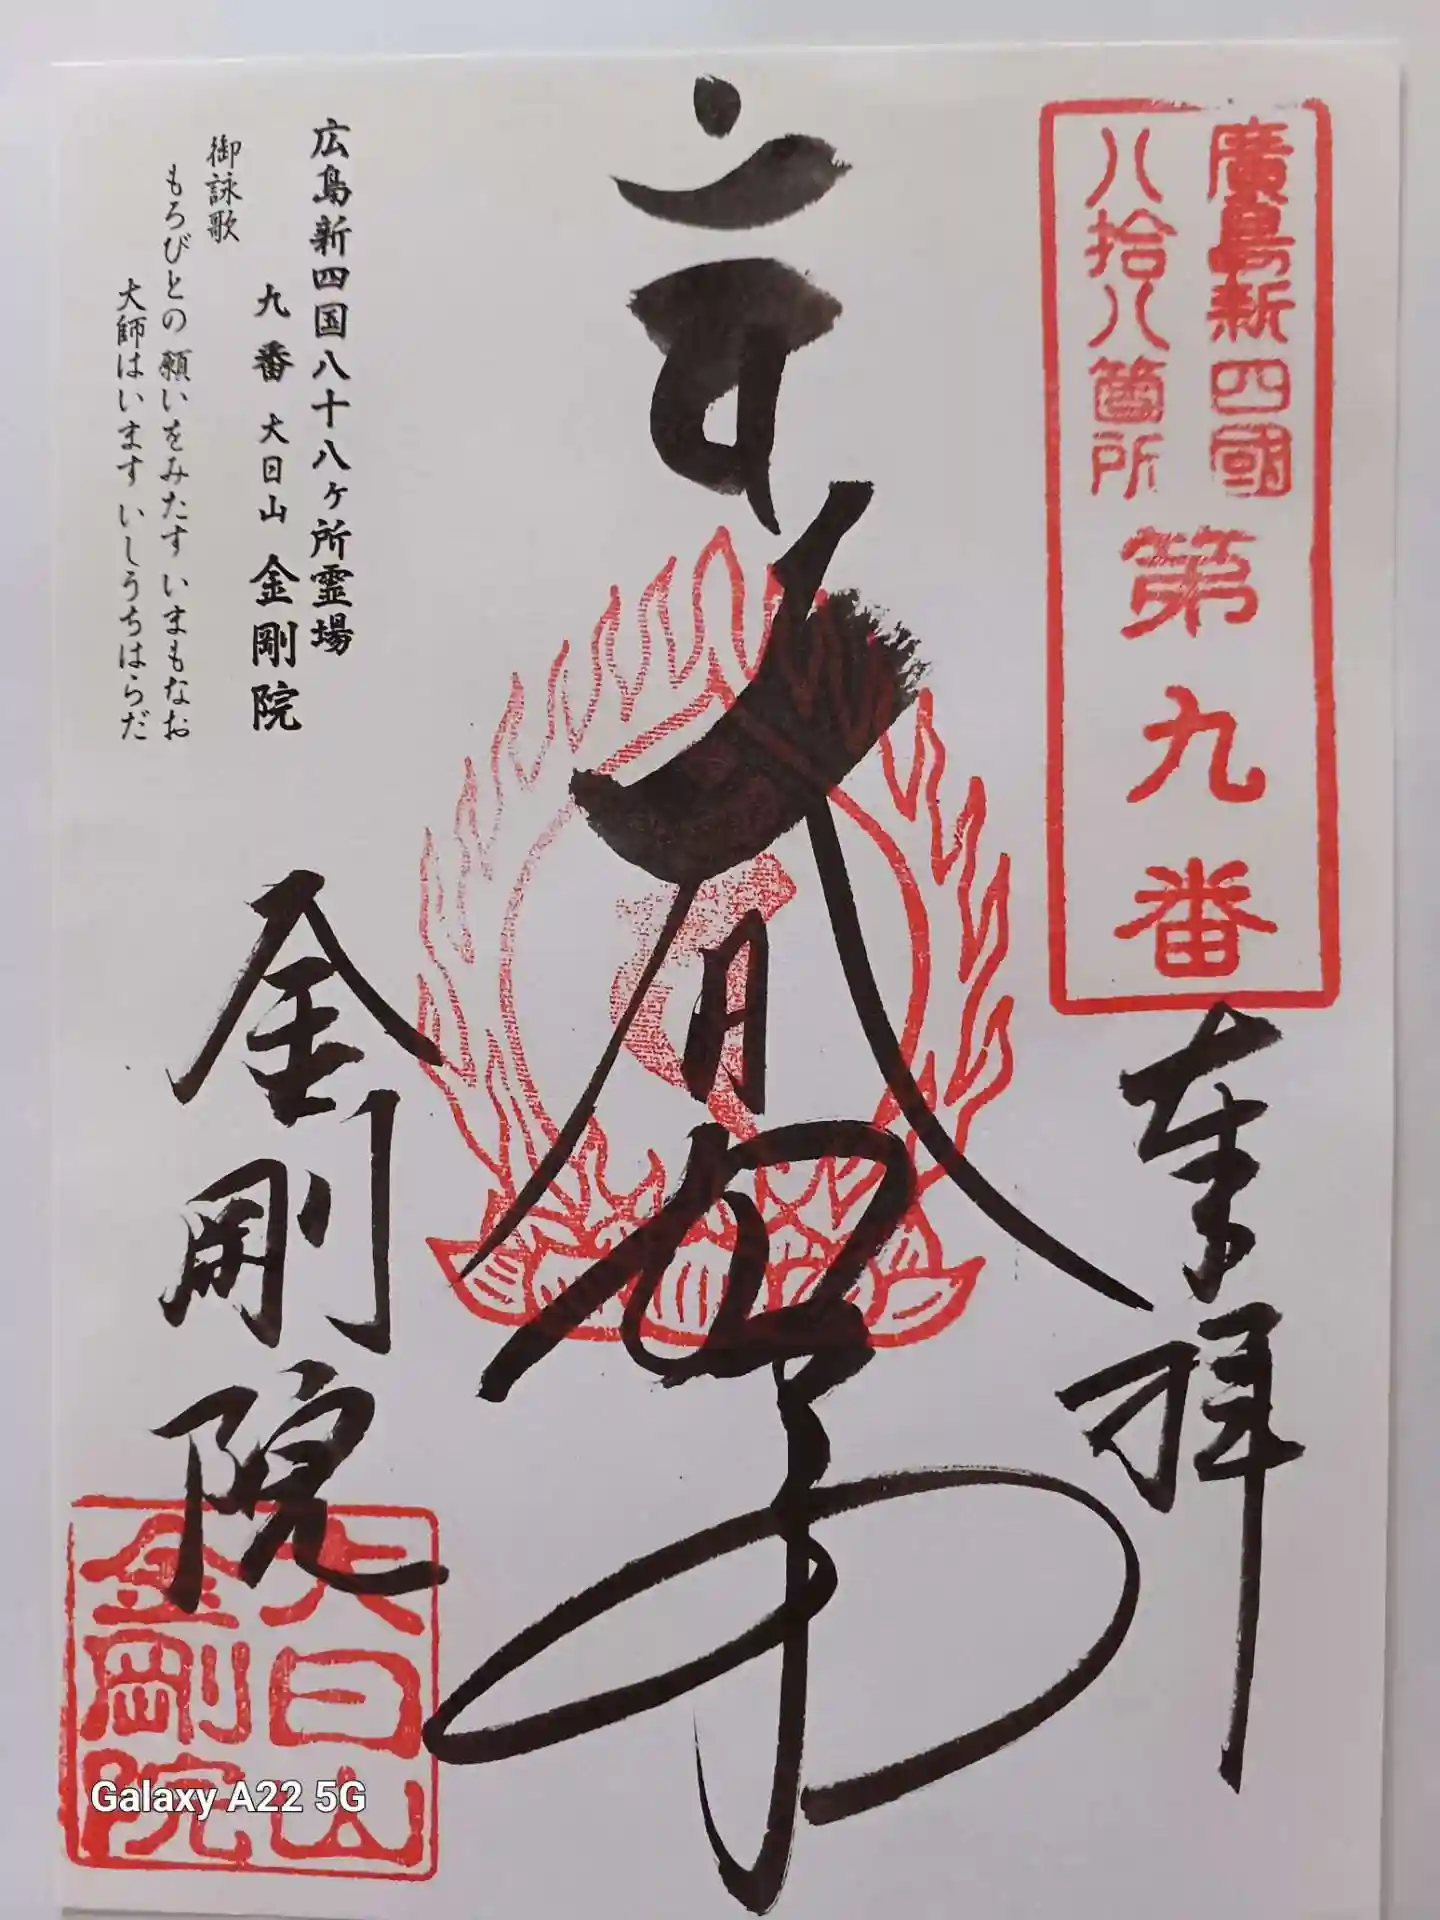 廣島新四國
八拾八箇所
第九番
奉拝
大師
金剛院
大日山
金剛院
広島新四国八十八ヶ所霊場
九番 大日山 金剛院
御詠歌
もろびとの 願いをみたす いまもなお
大師はいます いしうちはらだ
Galaxy A22 5G